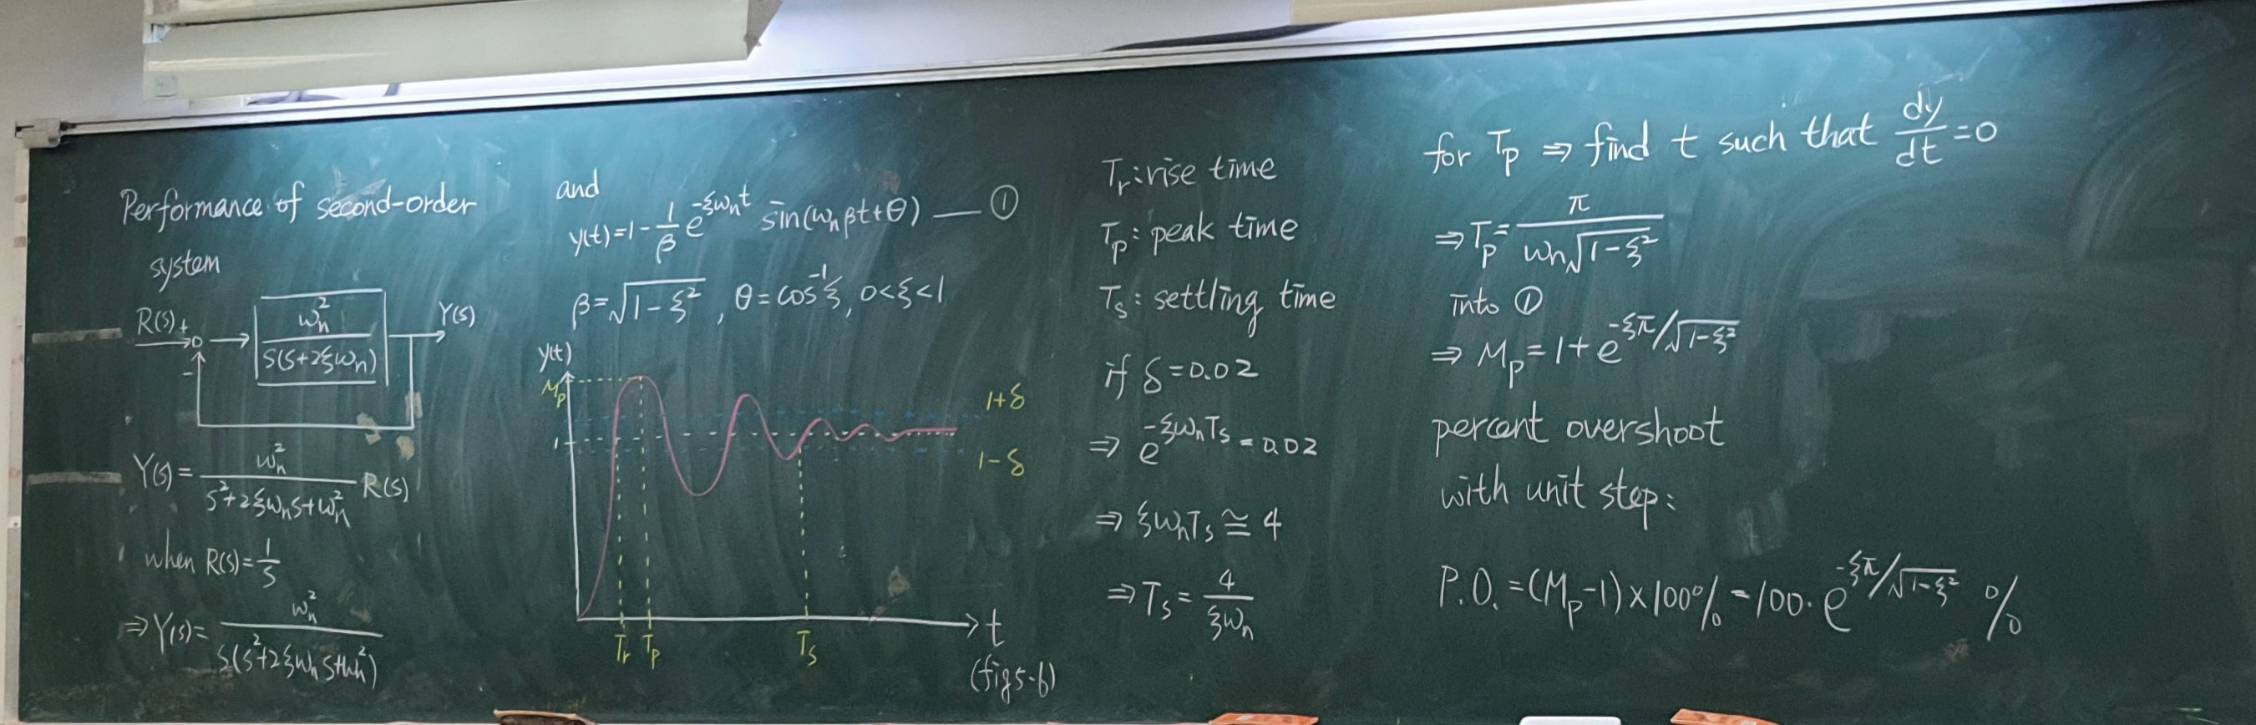 Performance of second-order
system
R(s) + - ωn²/s(s+2ξωn) Y(s)
Y(s) = ωn²/(s²+2ξωns+ωn²) R(s)
when R(s) = 1/s
⇒ Y(s) = ωn²/s(s²+2ξωns+ωn²)
and
y(t) = 1 - 1/β e^(-ξωnt) sin(ωnβt+θ) — ①
β = √(1-ξ²), θ = cos⁻¹ξ, 0<ξ<1
y(t)
Mp
1
1+δ
1-δ
Tr Tp Ts t
(fig 5-6)
Tr: rise time
Tp: peak time
Ts: settling time
if δ = 0.02
⇒ e^(-ξωnTs) = 0.02
⇒ ξωnTs ≅ 4
⇒ Ts = 4/ξωn
for Tp ⇒ find t such that dy/dt = 0
⇒ Tp = π/ωn√(1-ξ²)
into ①
⇒ Mp = 1 + e^(-ξπ/√(1-ξ²))
percent overshoot
with unit step:
P.O. = (Mp-1)×100% = 100·e^(-ξπ/√(1-ξ²)) %